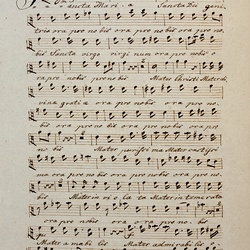 Sancta Maria Sancta Dei geni
trix ora pro nobis ora pro nobis ora pro no
bis Sancta virgo virginum ora pro nobis
ora pro nobis pro nobis Mater Christi Mater di
vina gratia ora pro nobis ora pro no
bis ora pro nobis ora pro nobis ora pro
no bis Mater purissima Mater castissi
ma ora pro nobis ora pro nobis ora pro no
bis Mater inviolata Mater intemerata
ora pro nobis ora pro nobis ora pro nobis
Mater amabilis Mater admirabilis